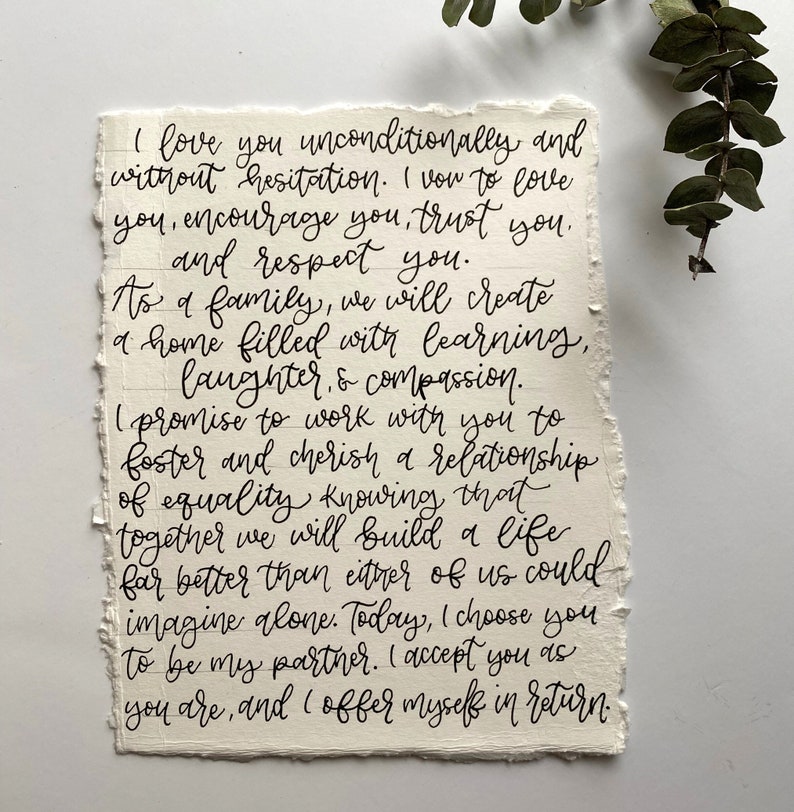 I love you unconditionally and
without hesitation. I vow to love
you, encourage you, trust you,
and respect you.
As a family, we will create
a home filled with learning,
laughter, & compassion.
I promise to work with you to
foster and cherish a relationship
of equality knowing that
together we will build a life
far better than either of us could
imagine alone. Today, I choose you
to be my partner. I accept you as
you are, and I offer myself in return.